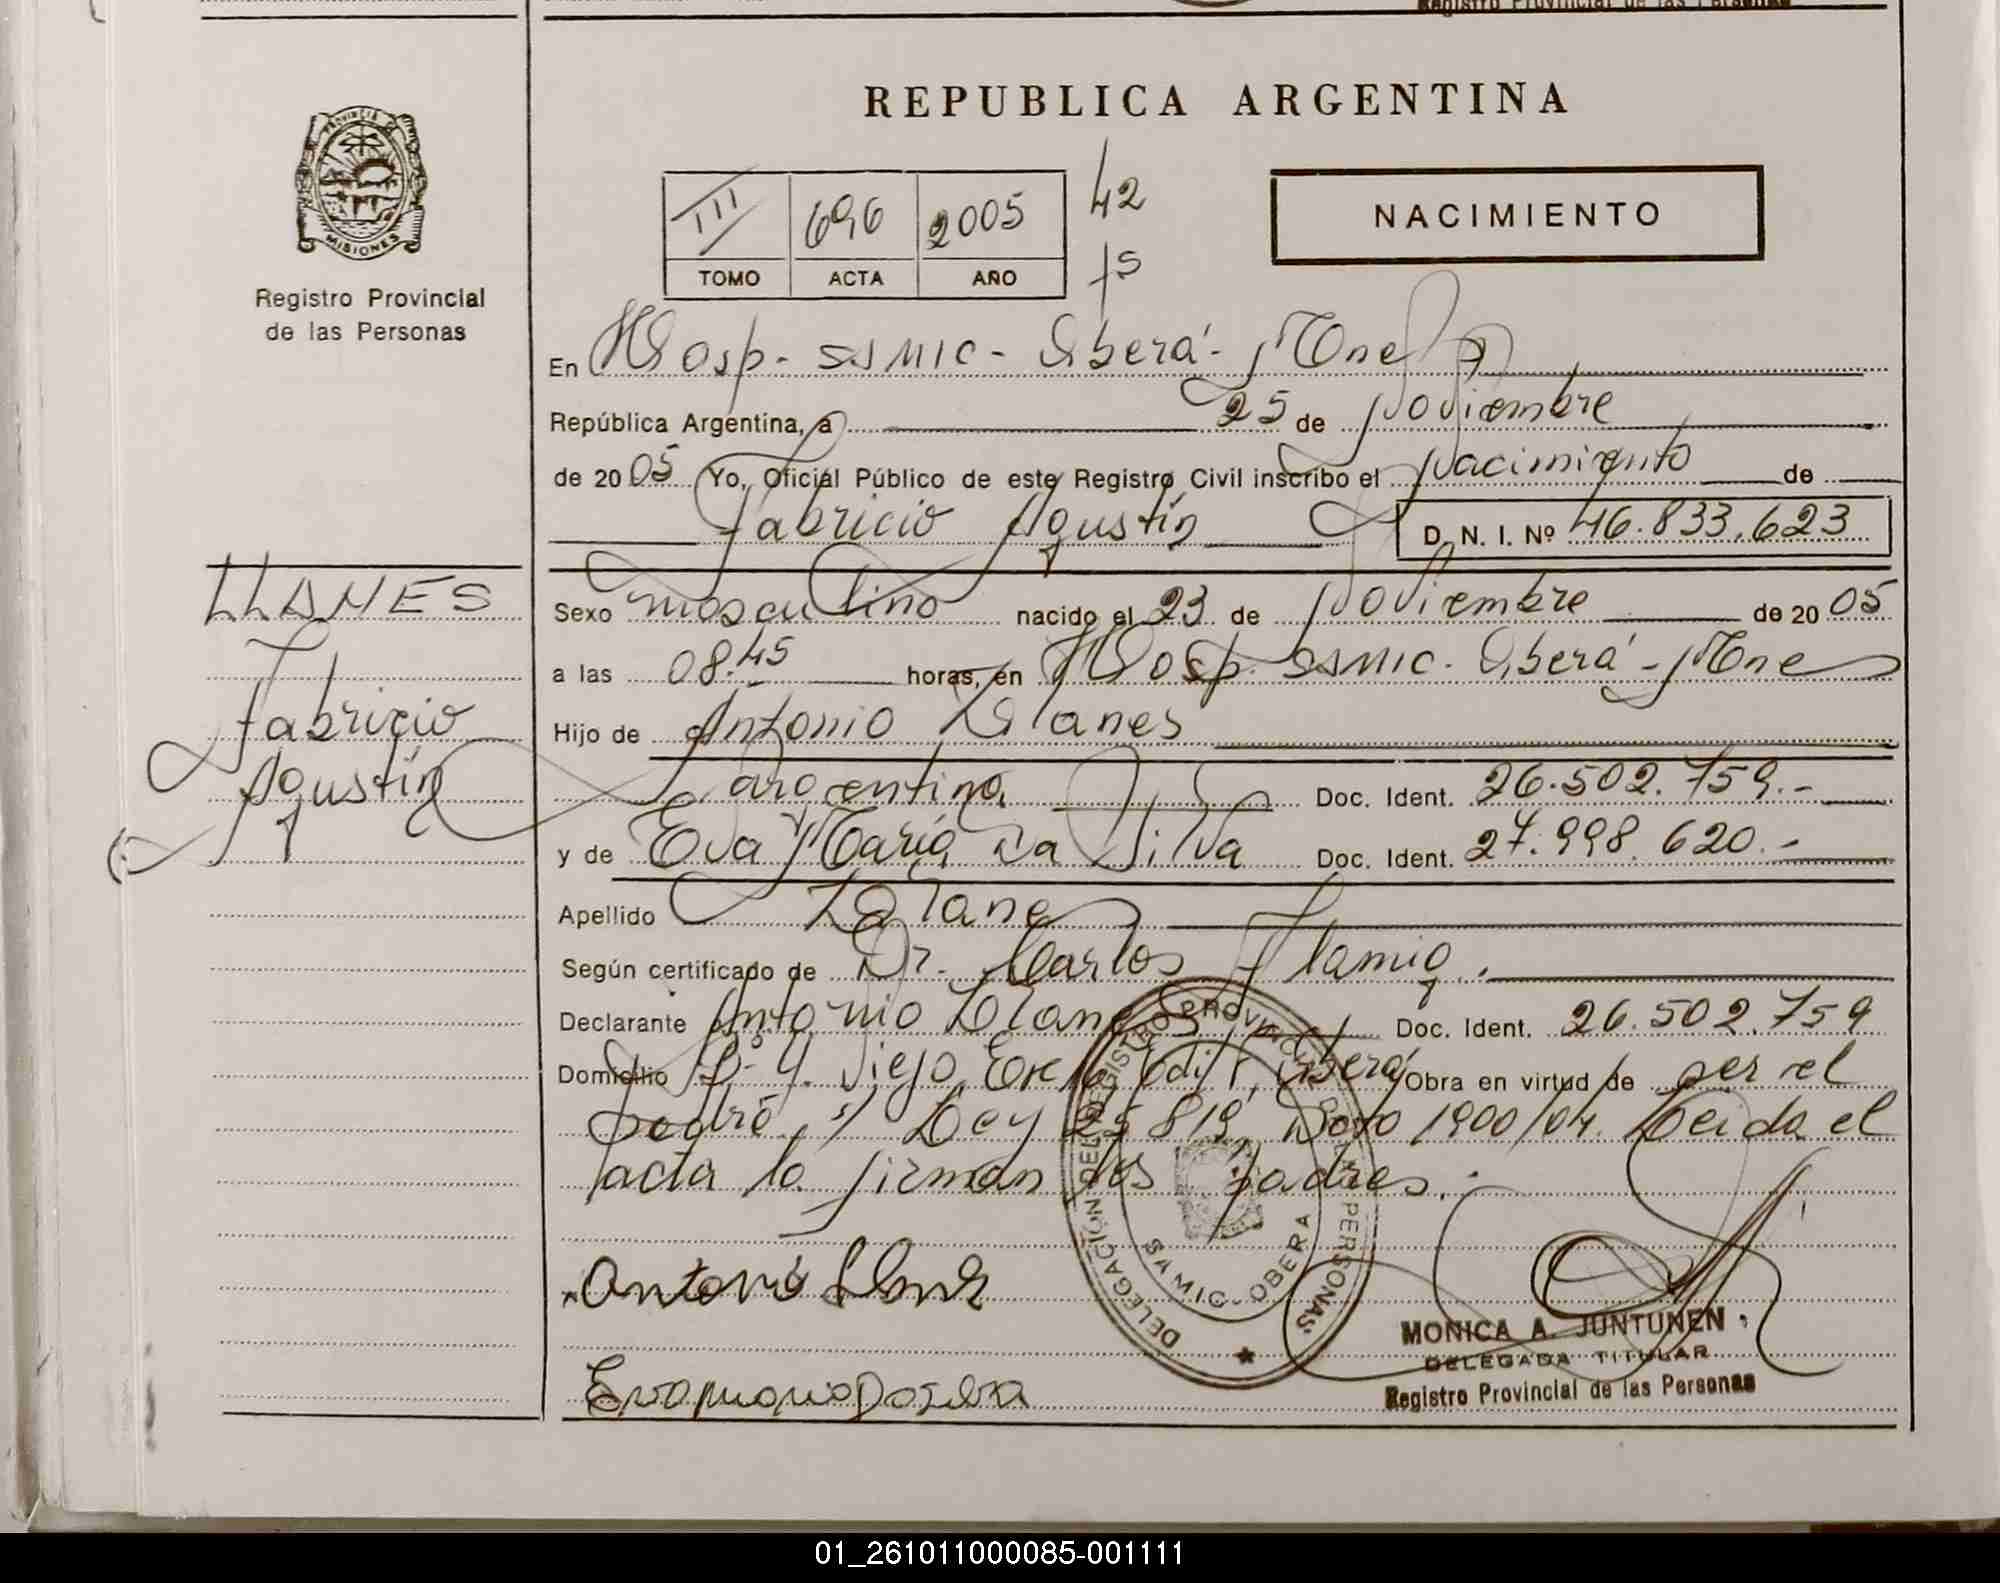 Registro Provincial de las Personas
REPUBLICA ARGENTINA
PROVINCIA DE
MISIONES
Registro Provincial
de las Personas
III 696 2005
TOMO ACTA AÑO
42
75
NACIMIENTO
En Hosp. SAMIC - Oberá - Mnes
República Argentina, a 25 de noviembre
de 2005 Yo, Oficial Público de este Registro Civil inscribo el nacimiento de
Fabricio Agustín D. N. I. Nº 46.833.623
LLANES
Fabricio
Agustín
Sexo masculino nacido el 23 de noviembre de 2005
a las 08.45 horas, en Hosp. SAMIC. Oberá - Mnes
Hijo de Antonio Llanes
argentina Doc. Ident. 26.502.759.-
y de Eva María Da Silva Doc. Ident. 27.998.620.-
Apellido Llanes
Según certificado de Dr. Carlos Flamig.
Declarante Antonio Llanes Doc. Ident. 26.502.759
Domicilio Bº Viejo Oberá Obra en virtud de ser el
padre s/ Ley 25819, Dcto 1900/04. Leida el
acta la firman los padres.
Antonio Llanes
Eva maria Da silva
DELEGACIÓN DEL REGISTRO PROVINCIAL DE LAS PERSONAS
SAMIC - OBERA
MONICA A. JUNTUNEN
DELEGADA TITULAR
Registro Provincial de las Personas
01_261011000085-001111